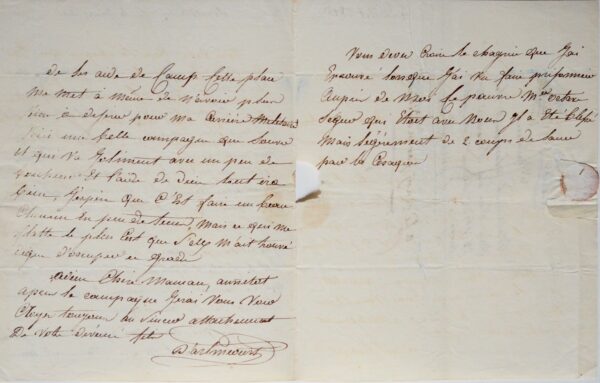 de ses aide de Camp Cette place
me met à même de n'avoir plus
rien a desirer pour ma Carriere Militaire
une belle campagne que s'ouvre
et que Va Joliment avec un peu de
bonheur Et l'aide de dieu tout ira
bien, J'espere que C'Est faire un beau
Chemin En peu de tems, mais ce qui me
flatte le plus Est que l'on m'ait trouvé
digne d'occuper ce grade
adieu Chere Maman, aussitot
apres la campagne J'irai Vous Voir
Croyez toujours au Sincere attachement
De Votre devoué fils
D'arlincourt
Vous devez Croire le chagrin que J'ai
Eprouvé lorsque J'ai Vu faire prisonnier
Aupres de nous le pauvre Mr octave
Segur qui Etoit avec Nous Il a Eté blessé
Mais légerement de 2 coups de lance
par les Cosaques